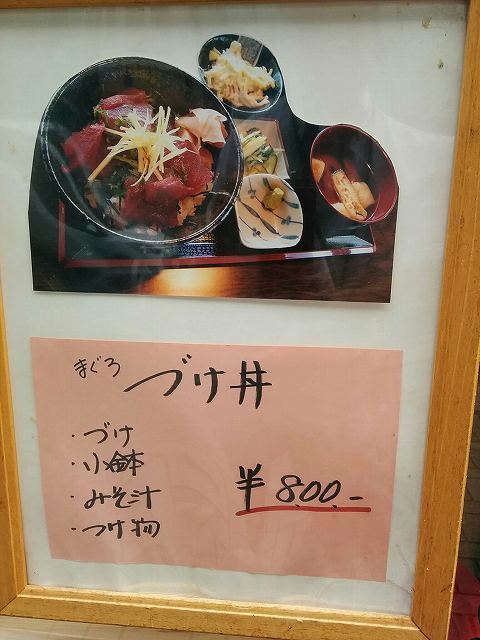 まぐろ
づけ丼
・づけ
・小鉢
・みそ汁
・つけ物
¥800.-